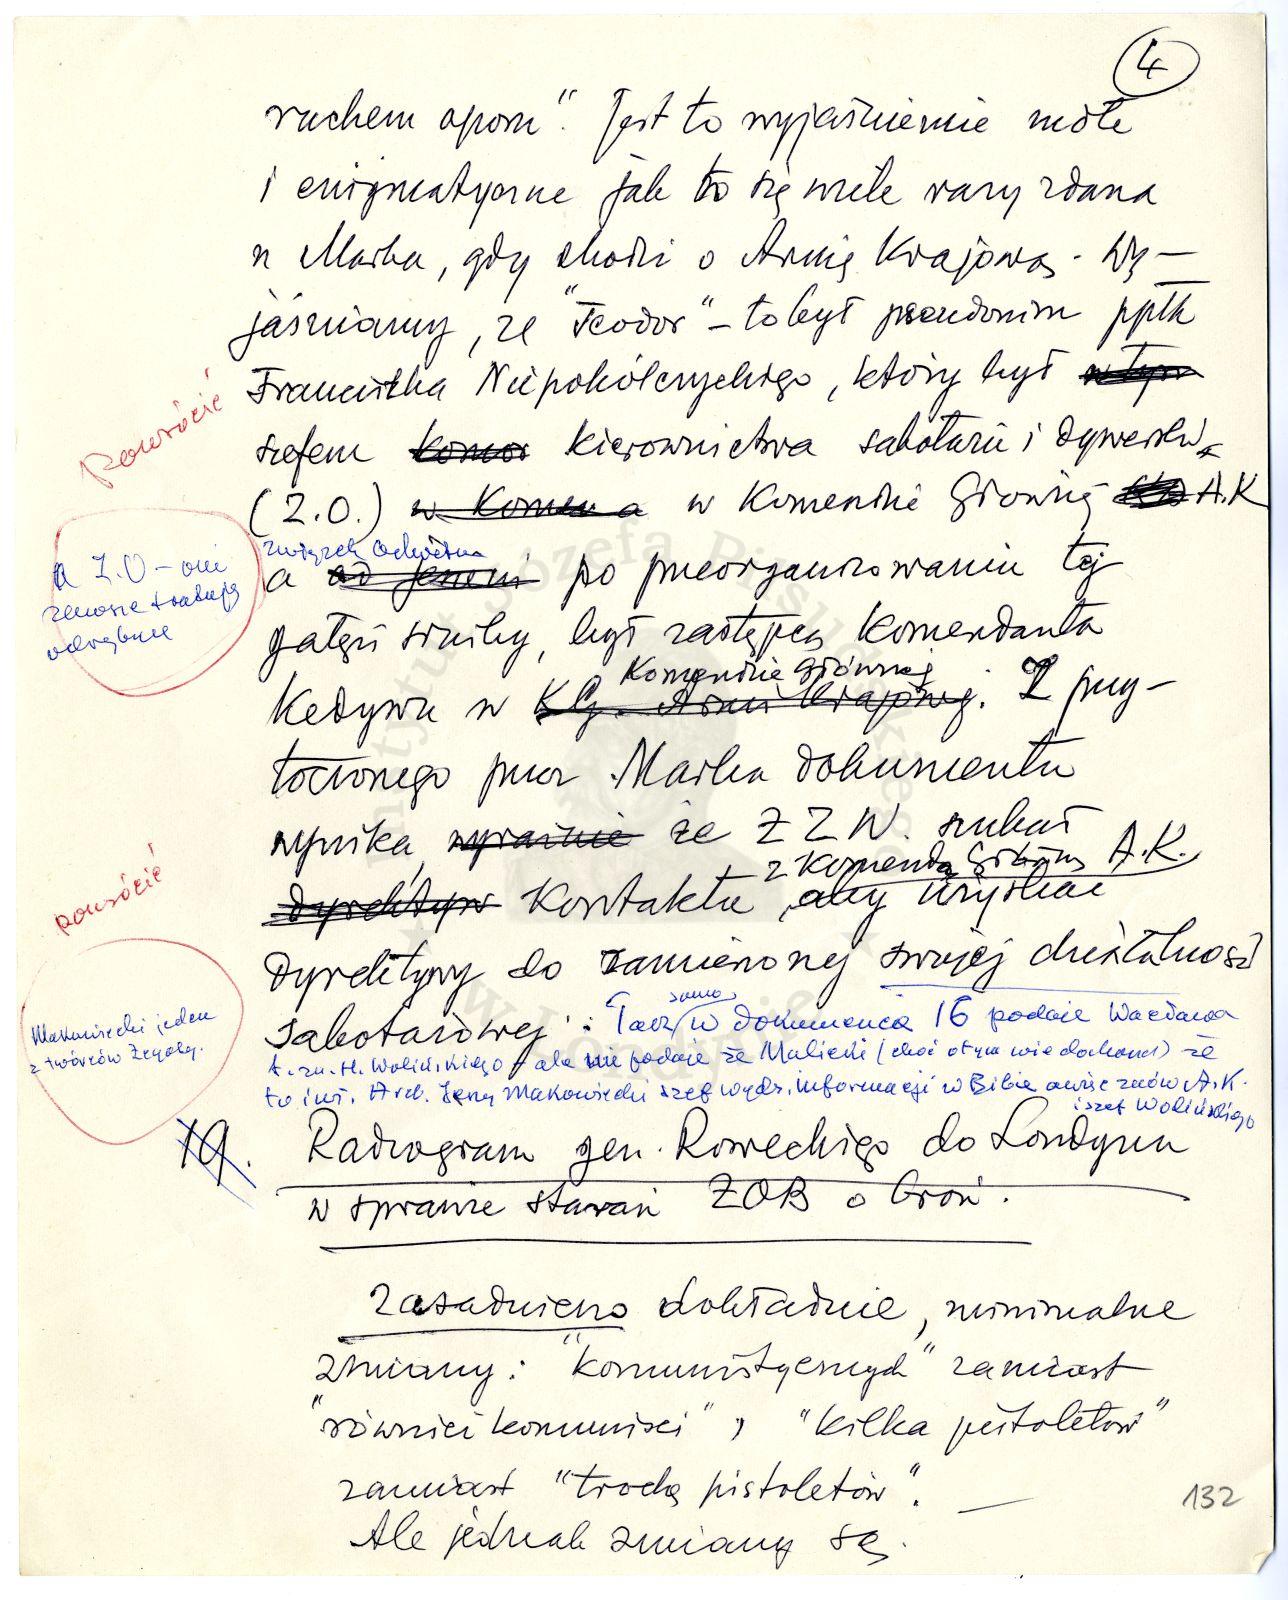 4
ruchem oporu". Jest to wyjaśnienie mętne
i enigmatyczne jak to się wiele razy zdarza
u Marka, gdy chodzi o Armię Krajową. Wy-
jaśniamy, że "Teodor" - to był pseudonim ppłk
Franciszka Niepokólczyckiego, który był
powrócić
szefem kierownictwa sabotażu i dywersji
(Z.O.) w Komendzie Głównej A.K
Związek Odwetu
a Z.O - oni
zawsze traktują
odrębnie
a po przeorganizowaniu tej
gałęzi służby, był zastępcą Komendanta
Komendzie Głównej
Kedywu w KG. Armii Krajowej. Z przy-
toczonego przez Marka dokumentu
wynika, wyraźnie że Ż Z W. szukał
z Komendą Główną A.K.
powrócić
kontaktu, aby uzyskać
dyrektywy do zamierzonej swojej działalności
Makowiecki jeden
z twórców Żegoty.
sabotażowej: Tak samo w dokumencie 16 podaje Wacława
t. zn. H. Wolińskiego - ale nie podaje że Malicki (choć o tym wie dochodzi) że
to inż. Arch. Jerzy Makowiecki szef wydz. informacji w Biurze A.K.
i szef Wolińskiego
19. Radiogram gen. Roweckiego do Londynu
w sprawie starań ŻOB o broń.
Zasadniczo dokładnie, minimalne
zmiany: "komunistycznych" zamiast
"również komuniści", "kilka pistoletów"
zamiast "trochę pistoletów".
132
Ale jednak zmiany są.